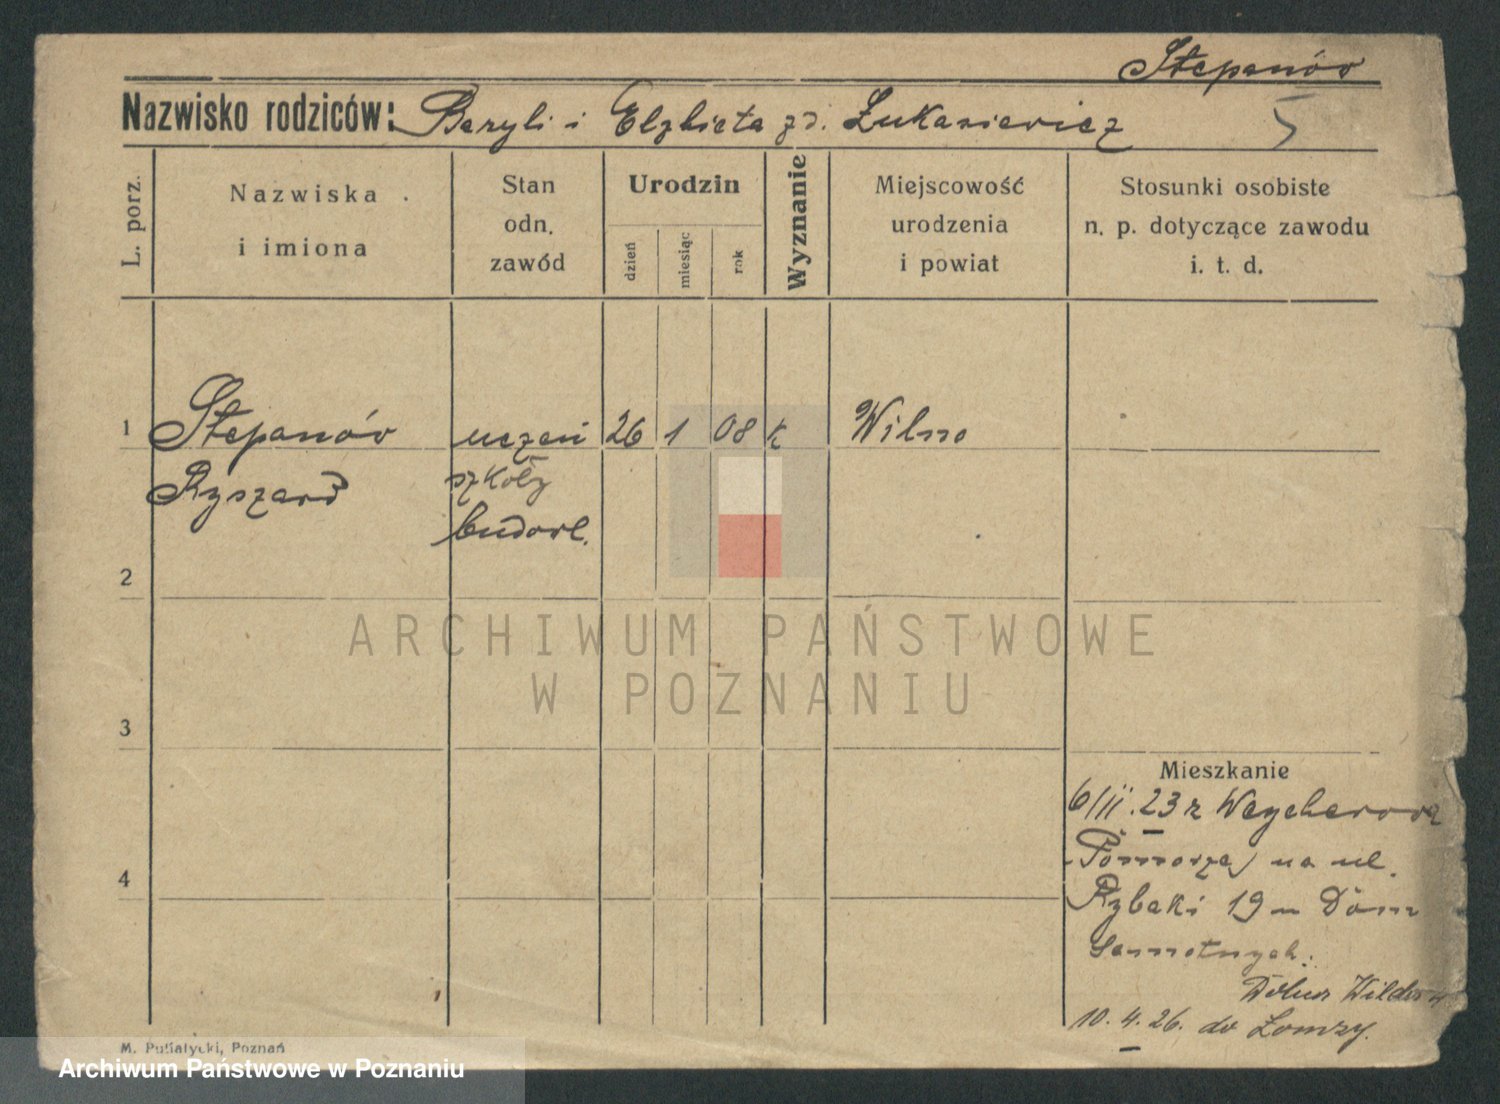 Stepanów
Nazwisko rodziców: Bazyli i Elzbieta zd. Łukasiewicz
L. porz.
Nazwiska
i imiona
Stan
odn.
zawód
Urodzin
dzień
miesiąc
rok
Wyznanie
Miejscowość
urodzenia
i powiat
Stosunki osobiste
n. p. dotyczące zawodu
i. t. d.
1 Stepanów uczeń 26 1 08 k Wilno
Ryszard szkoły
budowl.
2
ARCHIWUM PAŃSTWOWE
W POZNANIU
3
Mieszkanie
6/II.23 z Wejherowa
Pomorze na ul.
4
Rybaki 19 Dom
Samotnych.
10.4.26. do Łomży.
M. Putiatycki, Poznań
Archiwum Państwowe w Poznaniu